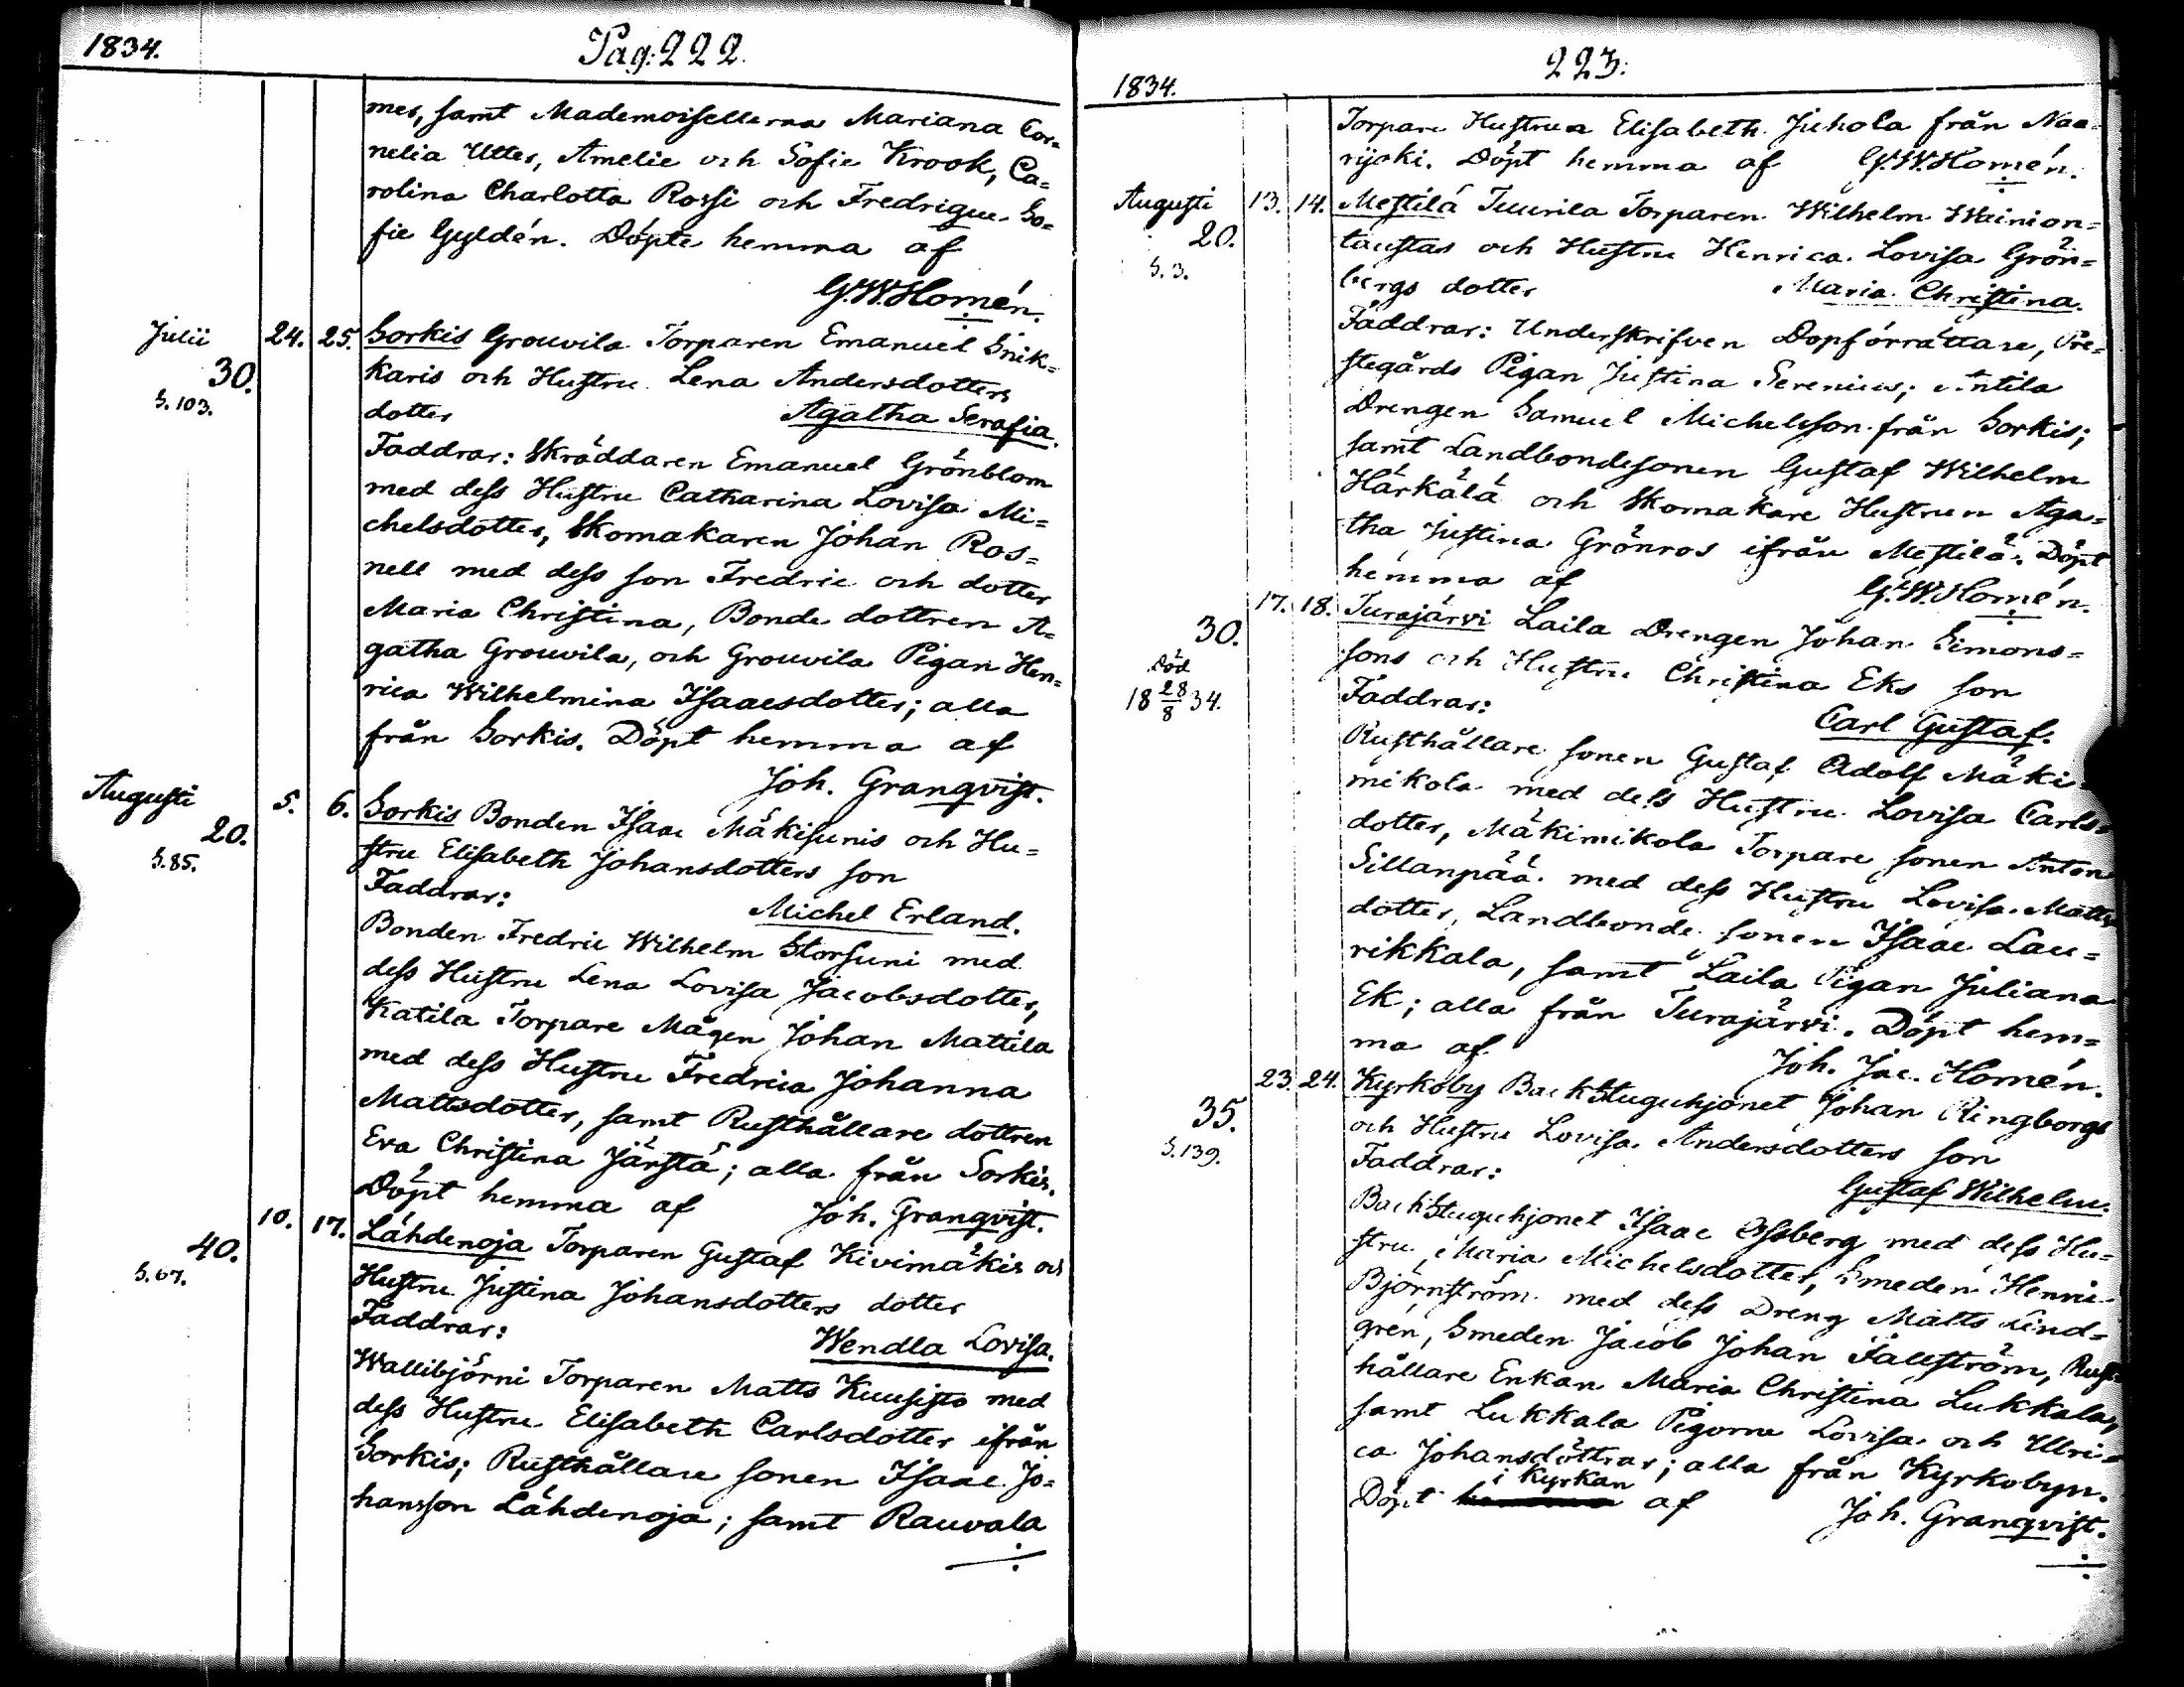 1834.
Pag: 222.
mer, samt Mademoisellerna Mariana Cor=
nelia Utter, Amelie och Sofie Krook, Ca=
rolina Charlotta Rossi och Fredrique So=
fie Gyldén. Döpte hemma af
G.W. Homén.
Julii 24. 25. Sorkis Grouvila Torparen Emanuel Snik=
30. karis och Hustru Lena Andersdotters
S. 103. dotter Agatha Serafia.
Faddrar: Skräddaren Emanuel Grönblom
med dess Hustru Catharina Lovisa Mi=
chelsdotter, Skomakaren Johan Ros=
nell med dess son Fredric och dotter
Maria Christina, Bonde dottren A=
gatha Grouvila, och Grouvila Pigan Hen=
rica Wilhelmina Isaacsdotter; alla
från Sorkis. Döpt hemma af
Joh. Granqvist.
Augusti 5. 6. Sorkis Bonden Isaac Mäkisunis och Hu=
20. stru Elisabeth Johansdotters son
S. 85. Faddrar: Michel Erland.
Bonden Fredric Wilhelm Storsuni med
dess Hustru Lena Lovisa Jacobsdotter,
Katila Torpare Mågen Johan Mattila
med dess Hustru Fredrica Johanna
Mattsdotter, samt Rusthållare dottren
Eva Christina Järstä; alla från Sorkis.
Döpt hemma af Joh. Granqvist.
10. 17. Lähdenoja Torparen Gustaf Kivimäkis och
40. Hustru Justina Johansdotters dotter
S. 67. Faddrar: Wendla Lovisa.
Wallibjörni Torparen Matts Kuusisto med
dess Hustru Elisabeth Carlsdotter ifrån
Sorkis; Rusthållare sonen Isaac Jo=
hansson Lähdenoja; samt Rauvala
223.
1834.
Torpare Hustrun Elisabeth Juhola från Naa=
rijoki. Döpt hemma af G.W. Homén.
Augusti 13. 14. Mestilä Tuurila Torparen Wilhelm Wäinion=
20. taustas och Hustru Henrica Lovisa Grön=
S. 3. bergs dotter Maria Christina.
Faddrar: Underskrifven Dopförrättare, Pre=
stegårds Pigan Justina Serenius; Antila
Drengen Samuel Michelsson från Sorkis;
samt Landbondesonen Gustaf Wilhelm
Härkälä och Skomakare Hustrun Aga=
tha Justina Grönros ifrån Mestilä. Döpt
hemma af G.W. Homén.
17. 18. Turajärvi Laila Drengen Johan Simons=
30. sons och Hustru Christina Eks son
Död 18 28/8 34. Faddrar: Carl Gustaf.
Rusthållare sonen Gustaf Adolf Mäki=
mikola med dess Hustru Lovisa Carls=
dotter, Mäkimikola Torpare sonen Anton
Sillanpää med dess Hustru Lovisa Matts
dotter, Landbonde sonen Isaac Lau=
rikkala, samt Laila Pigan Juliana
Ek; alla från Turajärvi. Döpt hem=
ma af Joh. Jac. Homén.
23. 24. Kyrkoby Backstuguhjonet Johan Ringborgs
35. och Hustru Lovisa Andersdotters son
S. 139. Faddrar: Gustaf Wilhelm.
Backstuguhjonet Isaac Essberg med dess Hu=
stru Maria Michelsdotter, Smeden Henric
Björnström med dess Dreng Matts Lind=
gren, Smeden Jacob Johan Fallström, Rust
hållare Enkan Maria Christina Lukkala,
samt Lukkala Pigorne Lovisa och Ulri=
ca Johansdöttrar; alla från Kyrkobyn.
i Kyrkan
Döpt hemma af Joh. Granqvist.